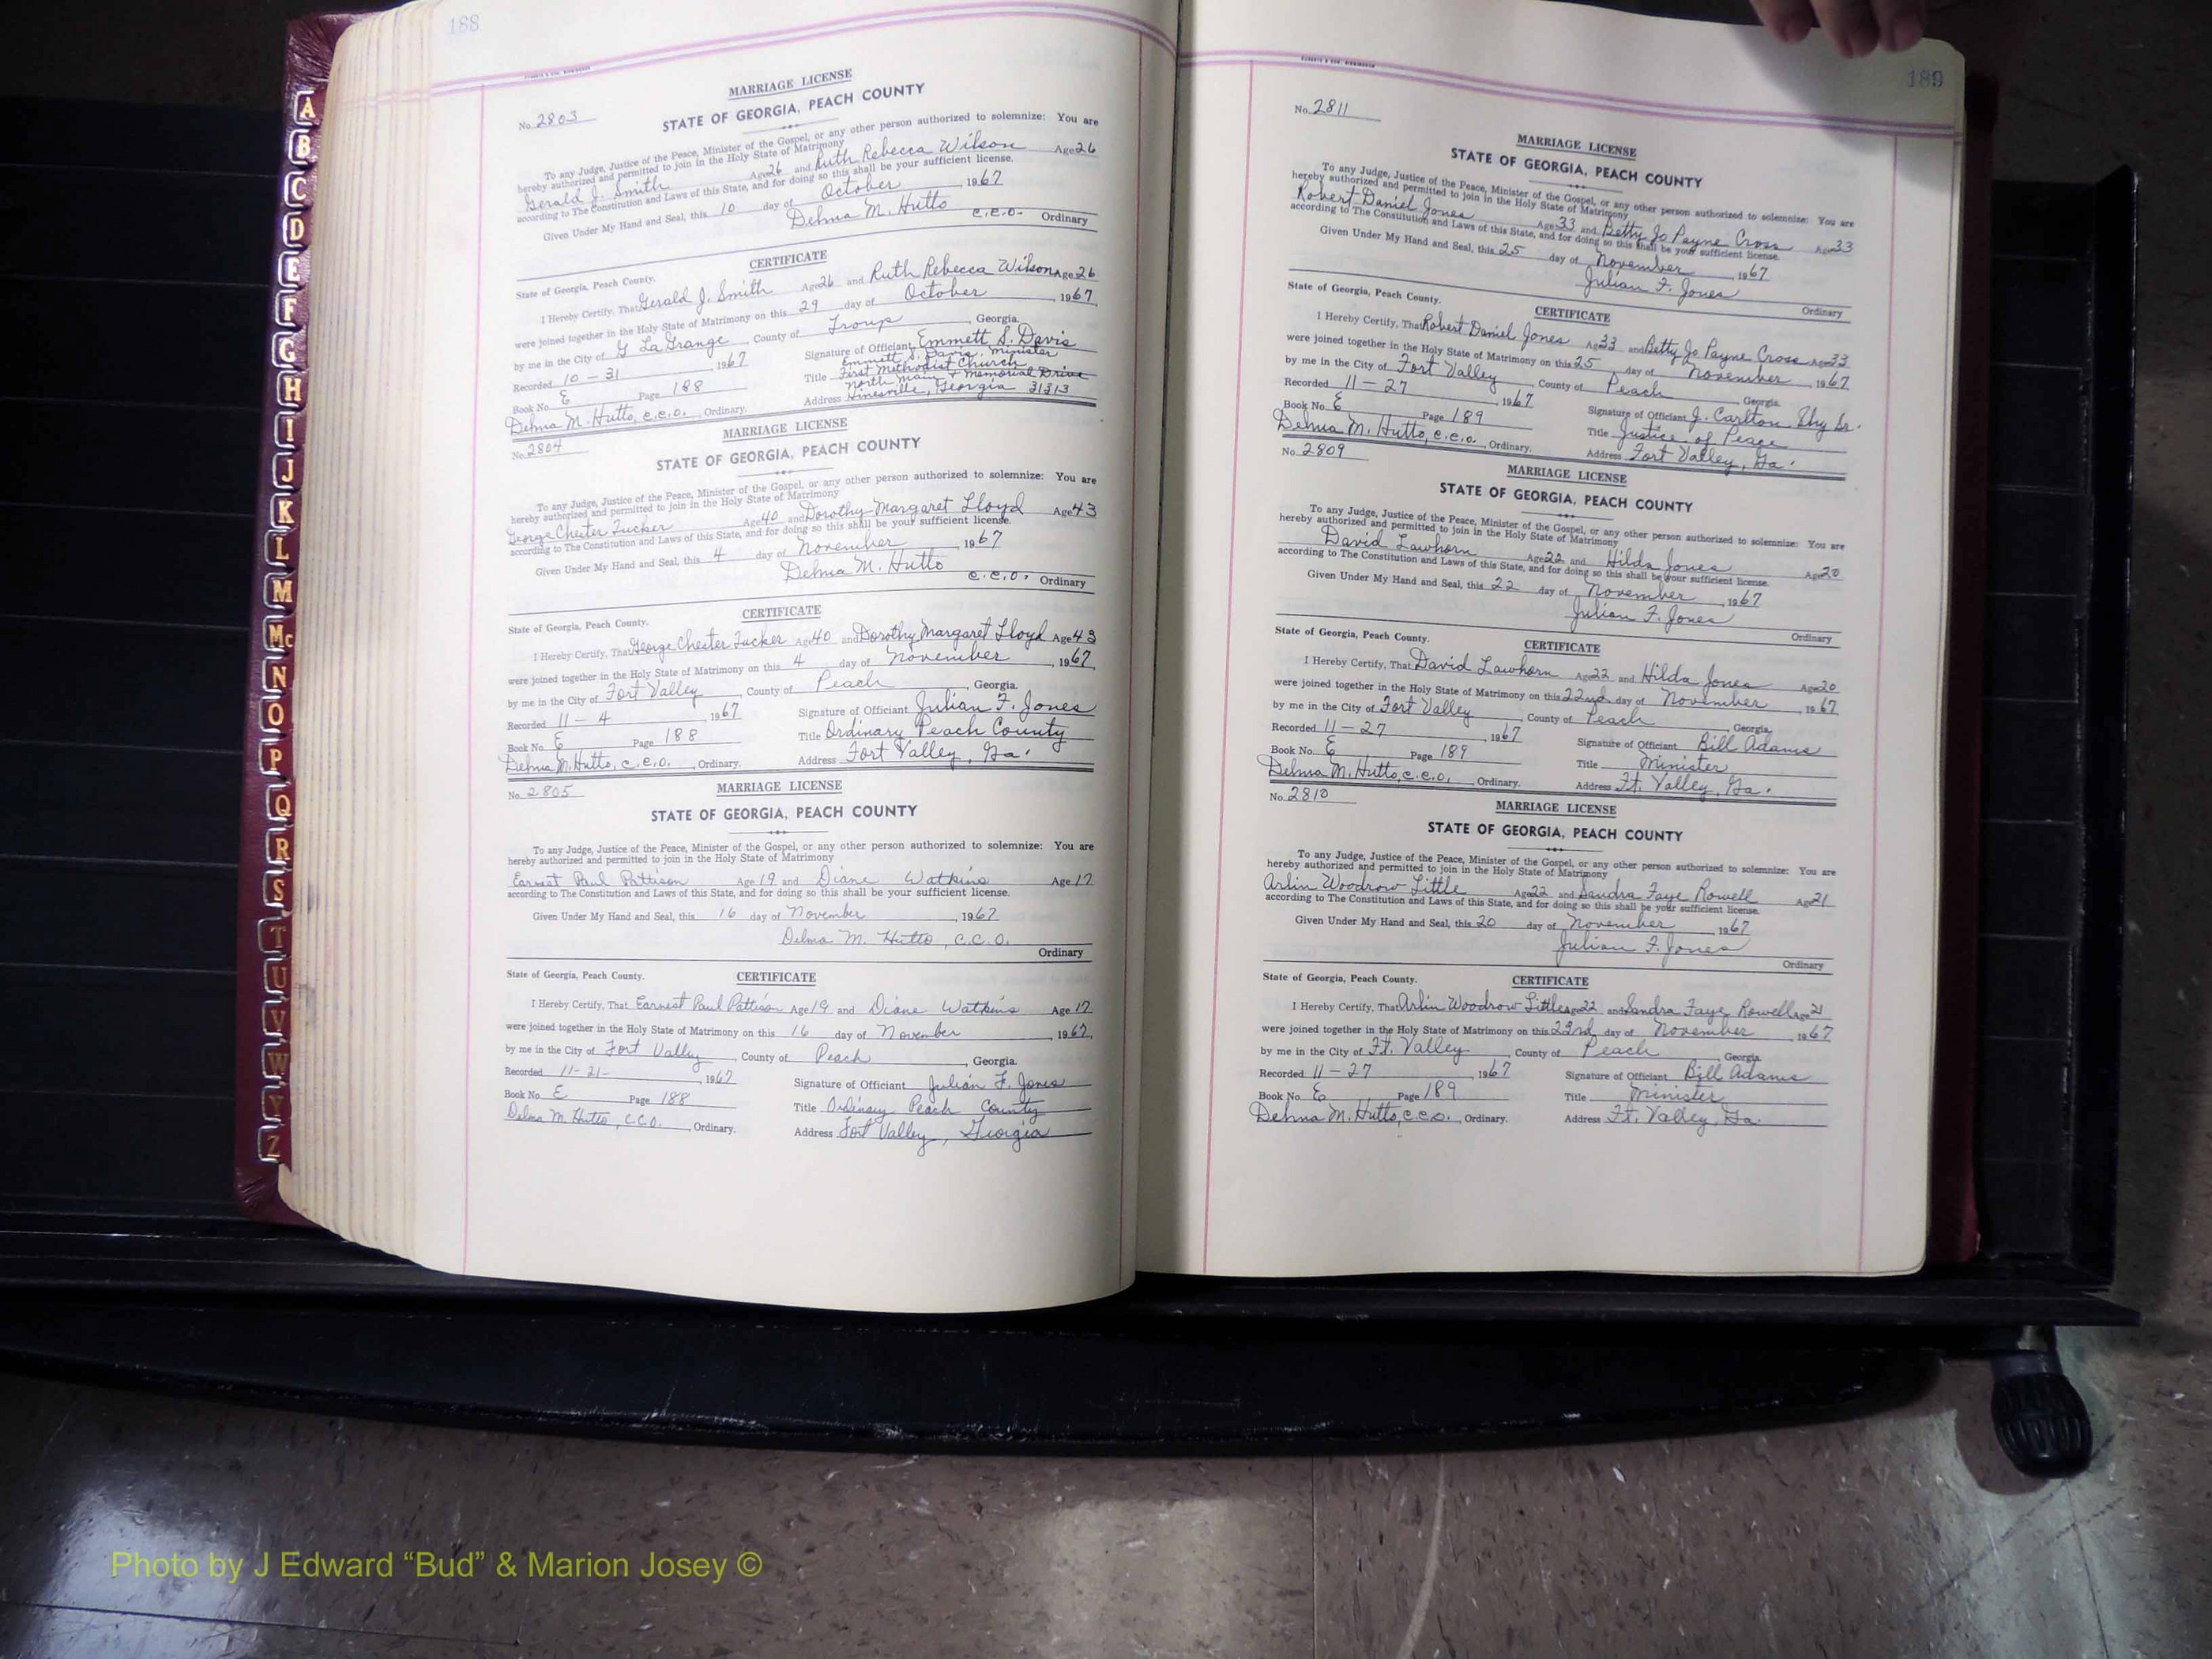 188
MARRIAGE LICENSE
No. 2803
STATE OF GEORGIA, PEACH COUNTY
To any Judge, Justice of the Peace, Minister of the Gospel, or any other person authorized to solemnize: You are
hereby authorized and permitted to join in the Holy State of Matrimony
Gerald J. Smith Age 26 and Ruth Rebecca Wilson Age 26
according to The Constitution and Laws of this State, and for doing so this shall be your sufficient license.
Given Under My Hand and Seal, this 10 day of October, 1967
Delma M. Hutto C.C.O. Ordinary
CERTIFICATE
State of Georgia, Peach County.
I Hereby Certify, That Gerald J. Smith Age 26 and Ruth Rebecca Wilson Age 26
were joined together in the Holy State of Matrimony on this 29 day of October, 1967,
by me in the City of La Grange, County of Troup, Georgia.
Recorded 10-31 1967
Signature of Officiant Emmett S. Davis
Emmett S. Davis, Minister
Title First Methodist Church
North Main & Memorial Drive
Book No. E Page 188
Address Hinesville, Georgia 31313
Delma M. Hutto, C.C.O., Ordinary.
MARRIAGE LICENSE
No. 2804
STATE OF GEORGIA, PEACH COUNTY
To any Judge, Justice of the Peace, Minister of the Gospel, or any other person authorized to solemnize: You are
hereby authorized and permitted to join in the Holy State of Matrimony
George Chester Tucker Age 40 and Dorothy Margaret Lloyd Age 43
according to The Constitution and Laws of this State, and for doing so this shall be your sufficient license.
Given Under My Hand and Seal, this 4 day of November, 1967
Delma M. Hutto C.C.O. Ordinary
CERTIFICATE
State of Georgia, Peach County.
I Hereby Certify, That George Chester Tucker Age 40 and Dorothy Margaret Lloyd Age 43
were joined together in the Holy State of Matrimony on this 4 day of November, 1967,
by me in the City of Fort Valley, County of Peach, Georgia.
Recorded 11-4, 1967
Signature of Officiant Julian F. Jones
Title Ordinary Peach County
Book No. E Page 188
Address Fort Valley, Ga.
Delma M. Hutto, C.C.O., Ordinary.
No. 2805
MARRIAGE LICENSE
STATE OF GEORGIA, PEACH COUNTY
To any Judge, Justice of the Peace, Minister of the Gospel, or any other person authorized to solemnize: You are
hereby authorized and permitted to join in the Holy State of Matrimony
Earnest Paul Pattison Age 19 and Diane Watkins Age 17
according to The Constitution and Laws of this State, and for doing so this shall be your sufficient license.
Given Under My Hand and Seal, this 16 day of November, 1967
Delma M. Hutto, C.C.O.
Ordinary
State of Georgia, Peach County. CERTIFICATE
I Hereby Certify, That Earnest Paul Pattison Age 19 and Diane Watkins Age 17
were joined together in the Holy State of Matrimony on this 16 day of November, 1967,
by me in the City of Fort Valley, County of Peach, Georgia.
Recorded 11-21-, 1967
Signature of Officiant Julian F. Jones
Book No. E Page 188
Title Ordinary Peach County
Delma M. Hutto, C.C.O., Ordinary.
Address Fort Valley, Georgia
189
No. 2811
MARRIAGE LICENSE
STATE OF GEORGIA, PEACH COUNTY
To any Judge, Justice of the Peace, Minister of the Gospel, or any other person authorized to solemnize: You are
hereby authorized and permitted to join in the Holy State of Matrimony
Robert Daniel Jones Age 33 and Betty Jo Payne Cross Age 33
according to The Constitution and Laws of this State, and for doing so this shall be your sufficient license.
Given Under My Hand and Seal, this 25 day of November, 1967
Julian F. Jones
Ordinary
State of Georgia, Peach County.
CERTIFICATE
I Hereby Certify, That Robert Daniel Jones Age 33 and Betty Jo Payne Cross Age 33
were joined together in the Holy State of Matrimony on this 25 day of November, 1967
by me in the City of Fort Valley, County of Peach, Georgia.
Recorded 11-27, 1967
Signature of Officiant J. Carlton Sr.
Book No. E Page 189
Title Justice of Peace
Delma M. Hutto, C.C.O., Ordinary.
Address Fort Valley, Ga.
No. 2809
MARRIAGE LICENSE
STATE OF GEORGIA, PEACH COUNTY
To any Judge, Justice of the Peace, Minister of the Gospel, or any other person authorized to solemnize: You are
hereby authorized and permitted to join in the Holy State of Matrimony
David Lawhorn Age 22 and Hilda Jones Age 20
according to The Constitution and Laws of this State, and for doing so this shall be your sufficient license.
Given Under My Hand and Seal, this 22 day of November, 1967
Julian F. Jones
Ordinary
State of Georgia, Peach County.
CERTIFICATE
I Hereby Certify, That David Lawhorn Age 22 and Hilda Jones Age 20
were joined together in the Holy State of Matrimony on this 22nd day of November, 1967
by me in the City of Fort Valley, County of Peach, Georgia
Recorded 11-27, 1967
Signature of Officiant Bill Adams
Book No. E Page 189
Title Minister
Delma M. Hutto, C.C.O., Ordinary.
Address Ft. Valley, Ga.
No. 2810
MARRIAGE LICENSE
STATE OF GEORGIA, PEACH COUNTY
To any Judge, Justice of the Peace, Minister of the Gospel, or any other person authorized to solemnize: You are
hereby authorized and permitted to join in the Holy State of Matrimony
Arlin Woodrow Little Age 22 and Sandra Faye Rowell Age 21
according to The Constitution and Laws of this State, and for doing so this shall be your sufficient license.
Given Under My Hand and Seal, this 20 day of November, 1967
Julian F. Jones
Ordinary
State of Georgia, Peach County. CERTIFICATE
I Hereby Certify, That Arlin Woodrow Little Age 22 and Sandra Faye Rowell Age 21
were joined together in the Holy State of Matrimony on this 23rd day of November, 1967
by me in the City of Ft. Valley, County of Peach, Georgia
Recorded 11-27, 1967
Signature of Officiant Bill Adams
Book No. E Page 189
Title Minister
Delma M. Hutto, C.C.O., Ordinary.
Address Ft. Valley, Ga.
A
B
C
D
E
F
G
H
I
J
K
L
M
Mc
N
O
P
Q
R
S
T
U
V
W
Y
Z
Photo by J Edward “Bud” & Marion Josey ©